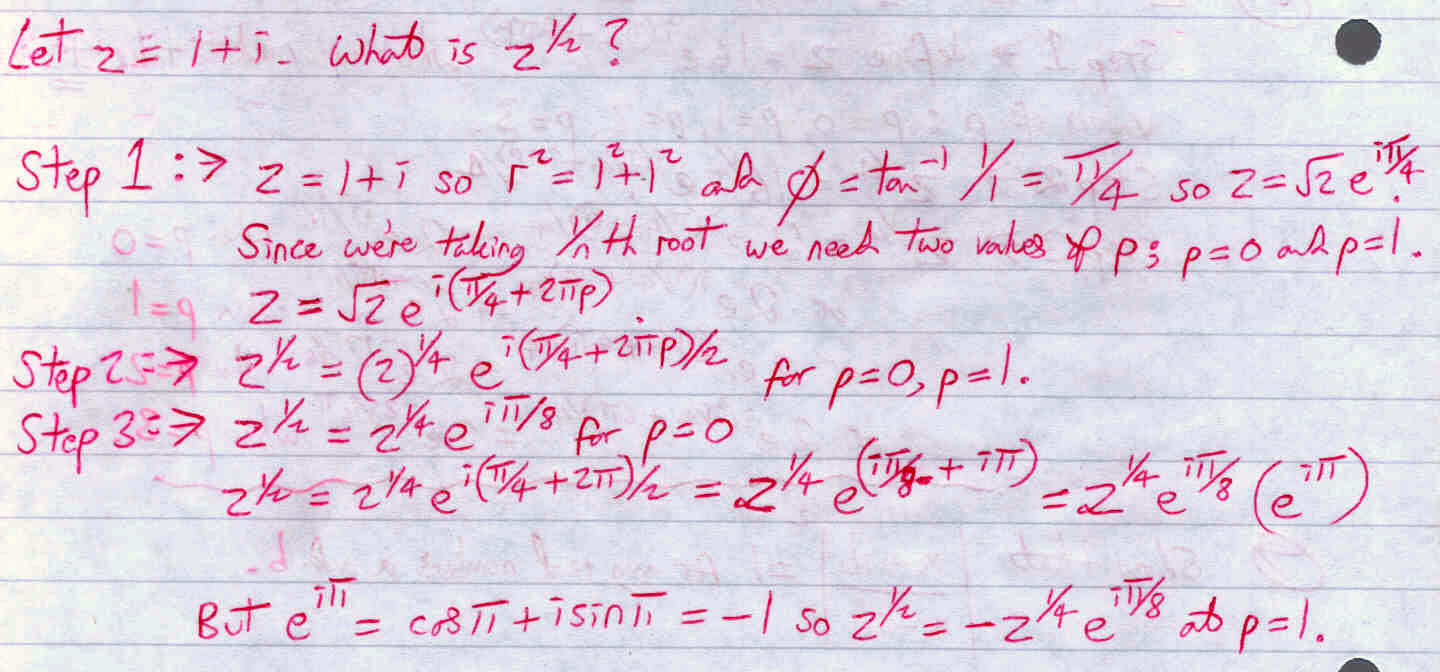 Let z = 1+i. What is z^1/2?
Step 1 :→ z = 1+i so r² = 1²+1² and ϕ = tan⁻¹ 1/1 = π/4 so z = √2 e^iπ/4.
Since we're taking 1/nth root we need two values of p; p=0 and p=1.
z = √2 e^i(π/4+2πp).
Step 2 :→ z^1/2 = (2)^1/4 e^i(π/4+2πp)/2 for p=0, p=1.
Step 3 :→ z^1/2 = 2^1/4 e^iπ/8 for p=0
z^1/2 = 2^1/4 e^i(π/4+2π)/2 = 2^1/4 e^(iπ/8 + iπ) = 2^1/4 e^iπ/8 (e^iπ)
But e^iπ = cosπ + i sinπ = -1 so z^1/2 = -2^1/4 e^iπ/8 at p=1.